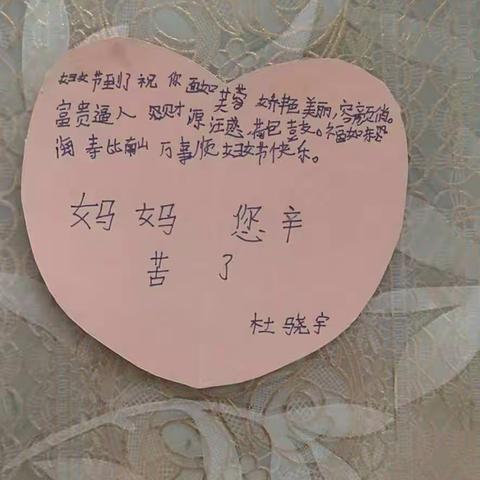 妇女节到了祝 你 面如芙蓉 娇艳美丽,容颜俏。
富贵逼人 财源汪盛,荷包喜女。福如东
海 寿比南山 万事顺 妇女节快乐。
妈 妈 您 辛
苦 了
杜骁宇